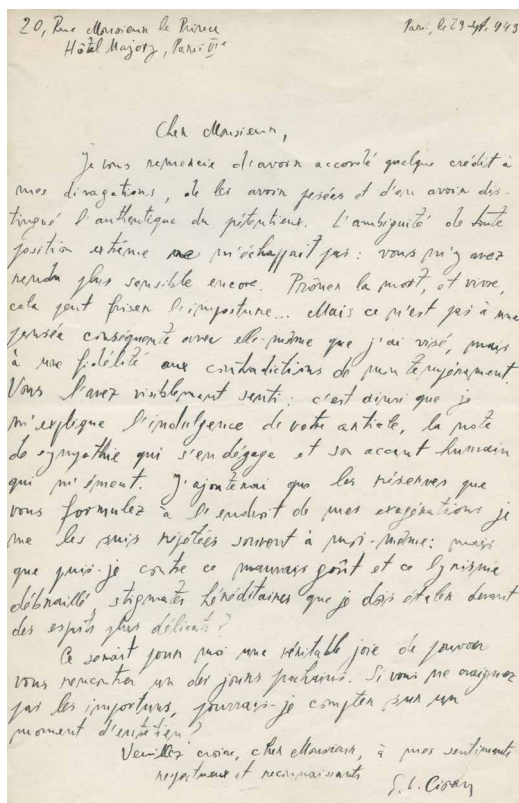 20, Rue Monsieur le Prince
Hôtel Majory, Paris VIe
Paris, le 29 sept. 1949
Cher Monsieur,
Je vous remercie d'avoir accordé quelque crédit à
mes divagations, de les avoir pesées et d'en avoir dis-
tingué l'authentique du prétentieux. L'ambiguïté de toute
position extrême ne m'échappait pas : vous m'y avez
rendu plus sensible encore. Prôner la mort, et vivre,
cela peut friser l'imposture... Mais ce n'est pas à une
pensée conséquente avec elle-même que j'ai visé, mais
à une fidélité aux contradictions de mon tempérament.
Vous l'avez visiblement senti ; c'est ainsi que je
m'explique l'indulgence de votre article, la note
de sympathie qui s'en dégage et son accent humain
qui m'émeut. J'ajouterai que les réserves que
vous formulez à l'endroit de mes exagérations je
me les suis répétées souvent à moi-même : mais
que puis-je contre ce mauvais goût et ce lyrisme
débraillé, stigmates héréditaires que je dois étaler devant
des esprits plus délicats ?
Ce serait pour moi une véritable joie de pouvoir
vous rencontrer un des jours prochains. Si vous ne craignez
pas les importuns, pourrais-je compter sur un
moment d'entretien ?
Veuillez croire, cher Monsieur, à mes sentiments
respectueux et reconnaissants
E. M. Cioran